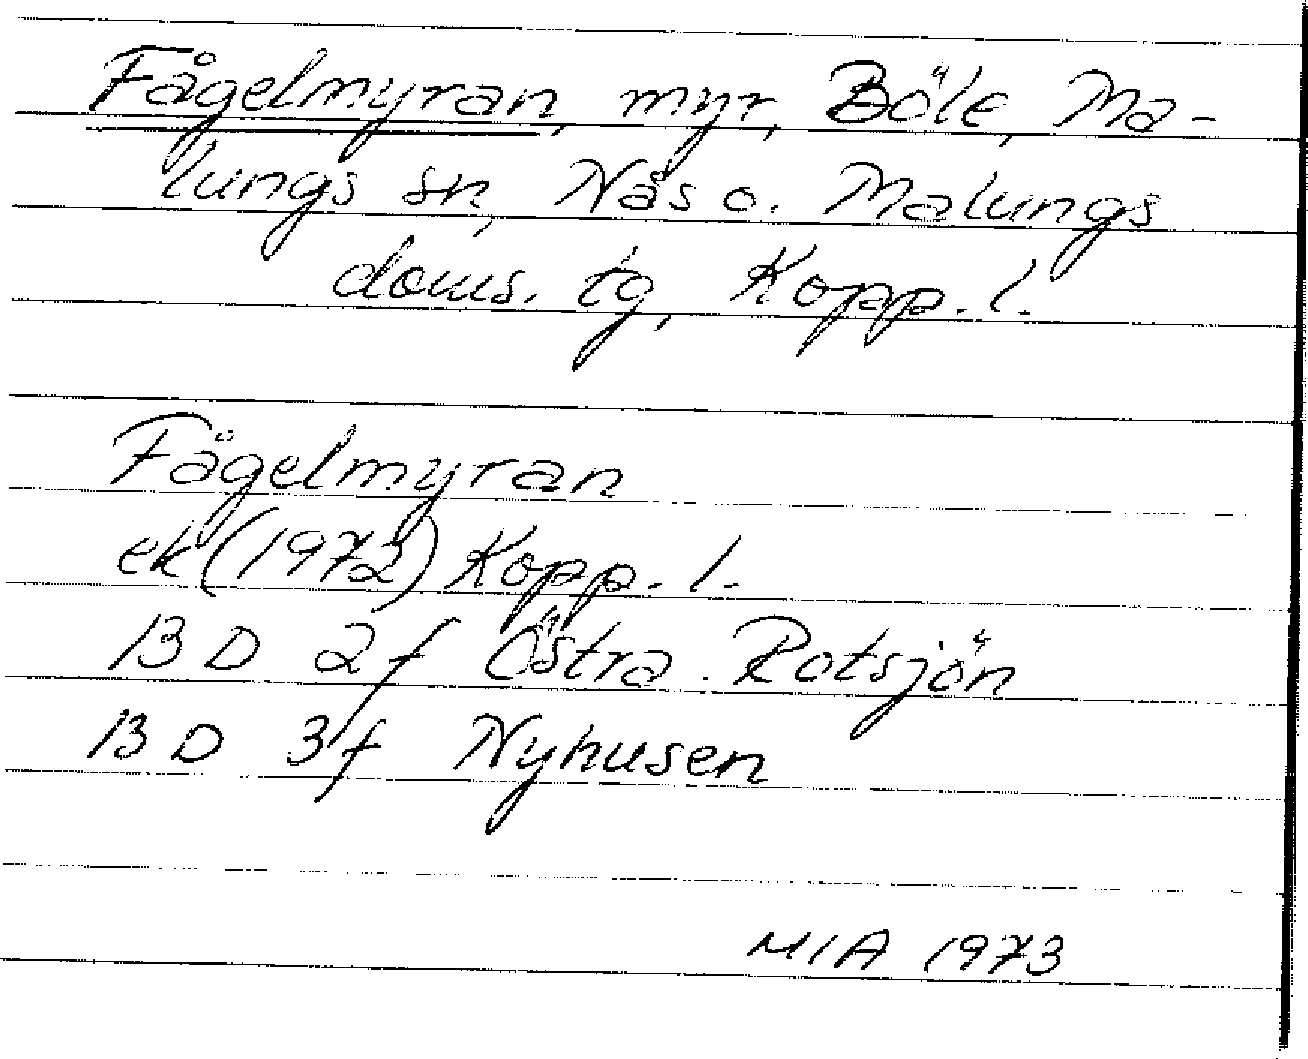 Fågelmyran, myr, Böle, Ma-
lungs sn, Nås o. Malungs
doms. tg, Kopp. l.
Fågelmyran
ek (1972) Kopp. l.
13 D 2 f Östra Rotsjön
13 D 3 f Nyhusen
MIA 1973